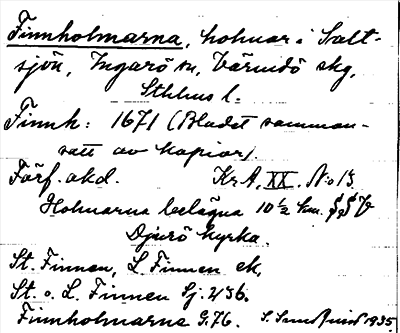 Finnholmarna, holmar i Salt-
sjön, Ingarö sn, Värmdö skg,
Sthlms l.
Finnh: 1671 (Bladet samman-
satt av kopior).
Förf. okd. Kr. A, XX, No 13
Holmarna belägna 10 ½ km. S, S V
Djurö kyrka.
St. Finnen, L. Finnen ek,
St. o. L. Finnen Sj. 236.
Finnholmarna G.76. S. 1935